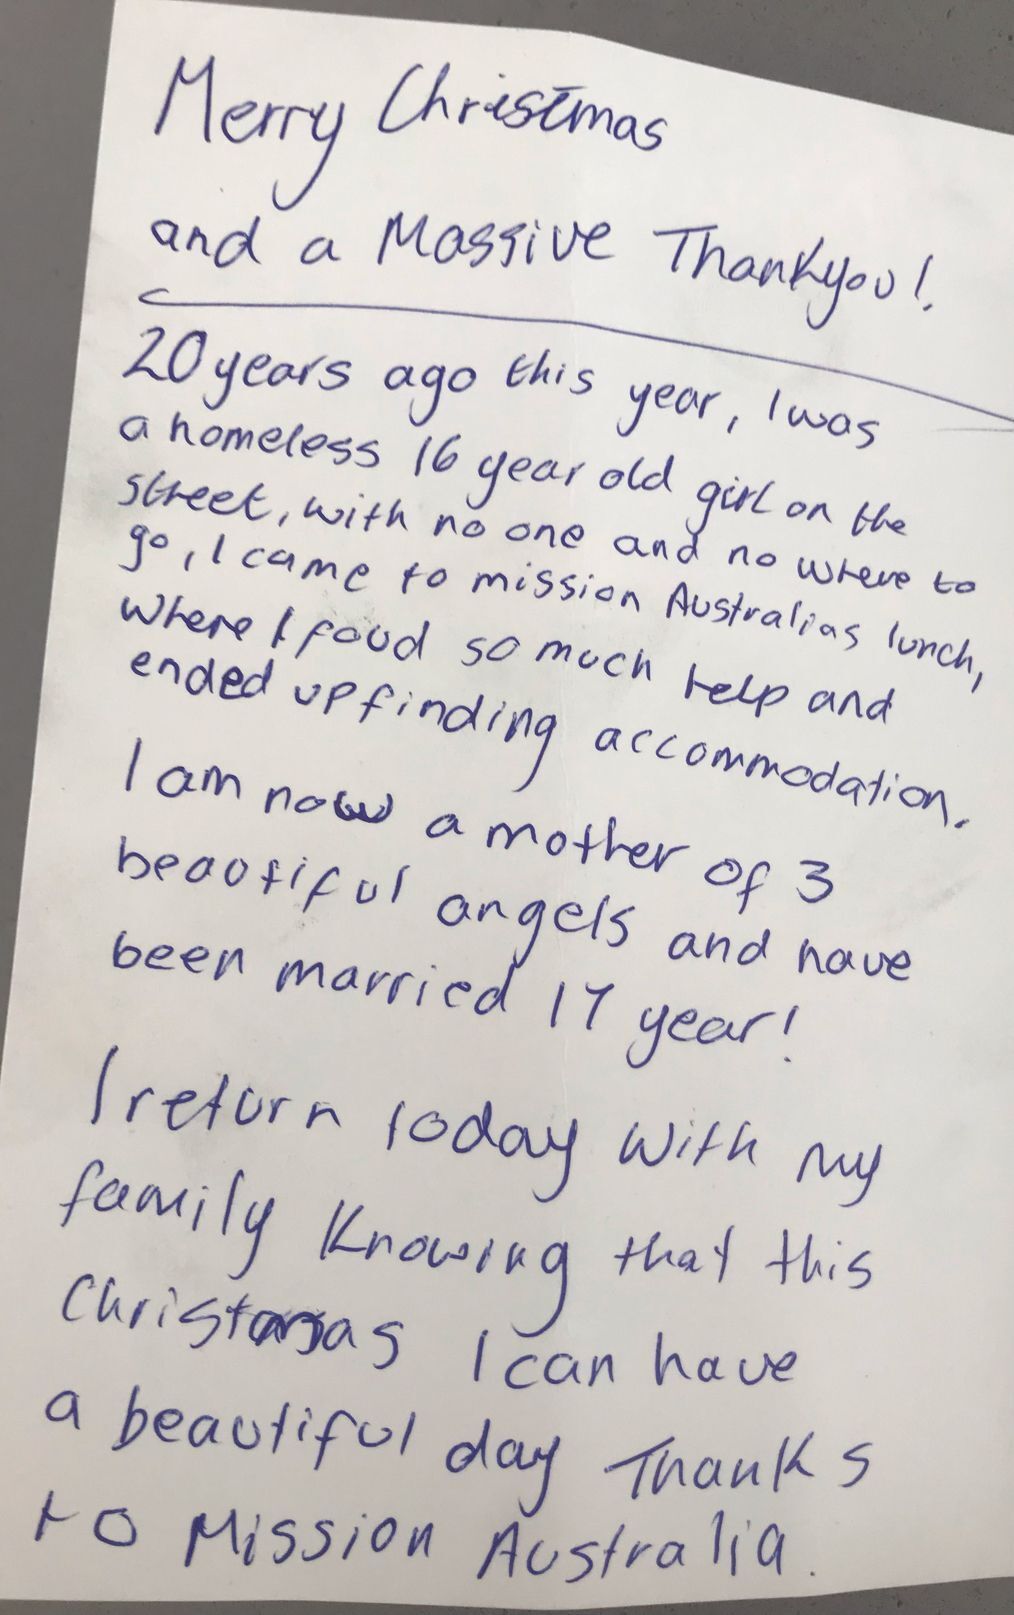 Merry Christmas
and a Massive Thankyou!
20 years ago this year, I was
a homeless 16 year old girl on the
street, with no one and no where to
go, I came to mission Australias lunch,
where I foud so much help and
ended up finding accommodation.
I am now a mother of 3
beautiful angels and have
been married 17 year!
I return today with my
family Knowing that this
Christmas I can have
a beautiful day Thanks
to Mission Australia.